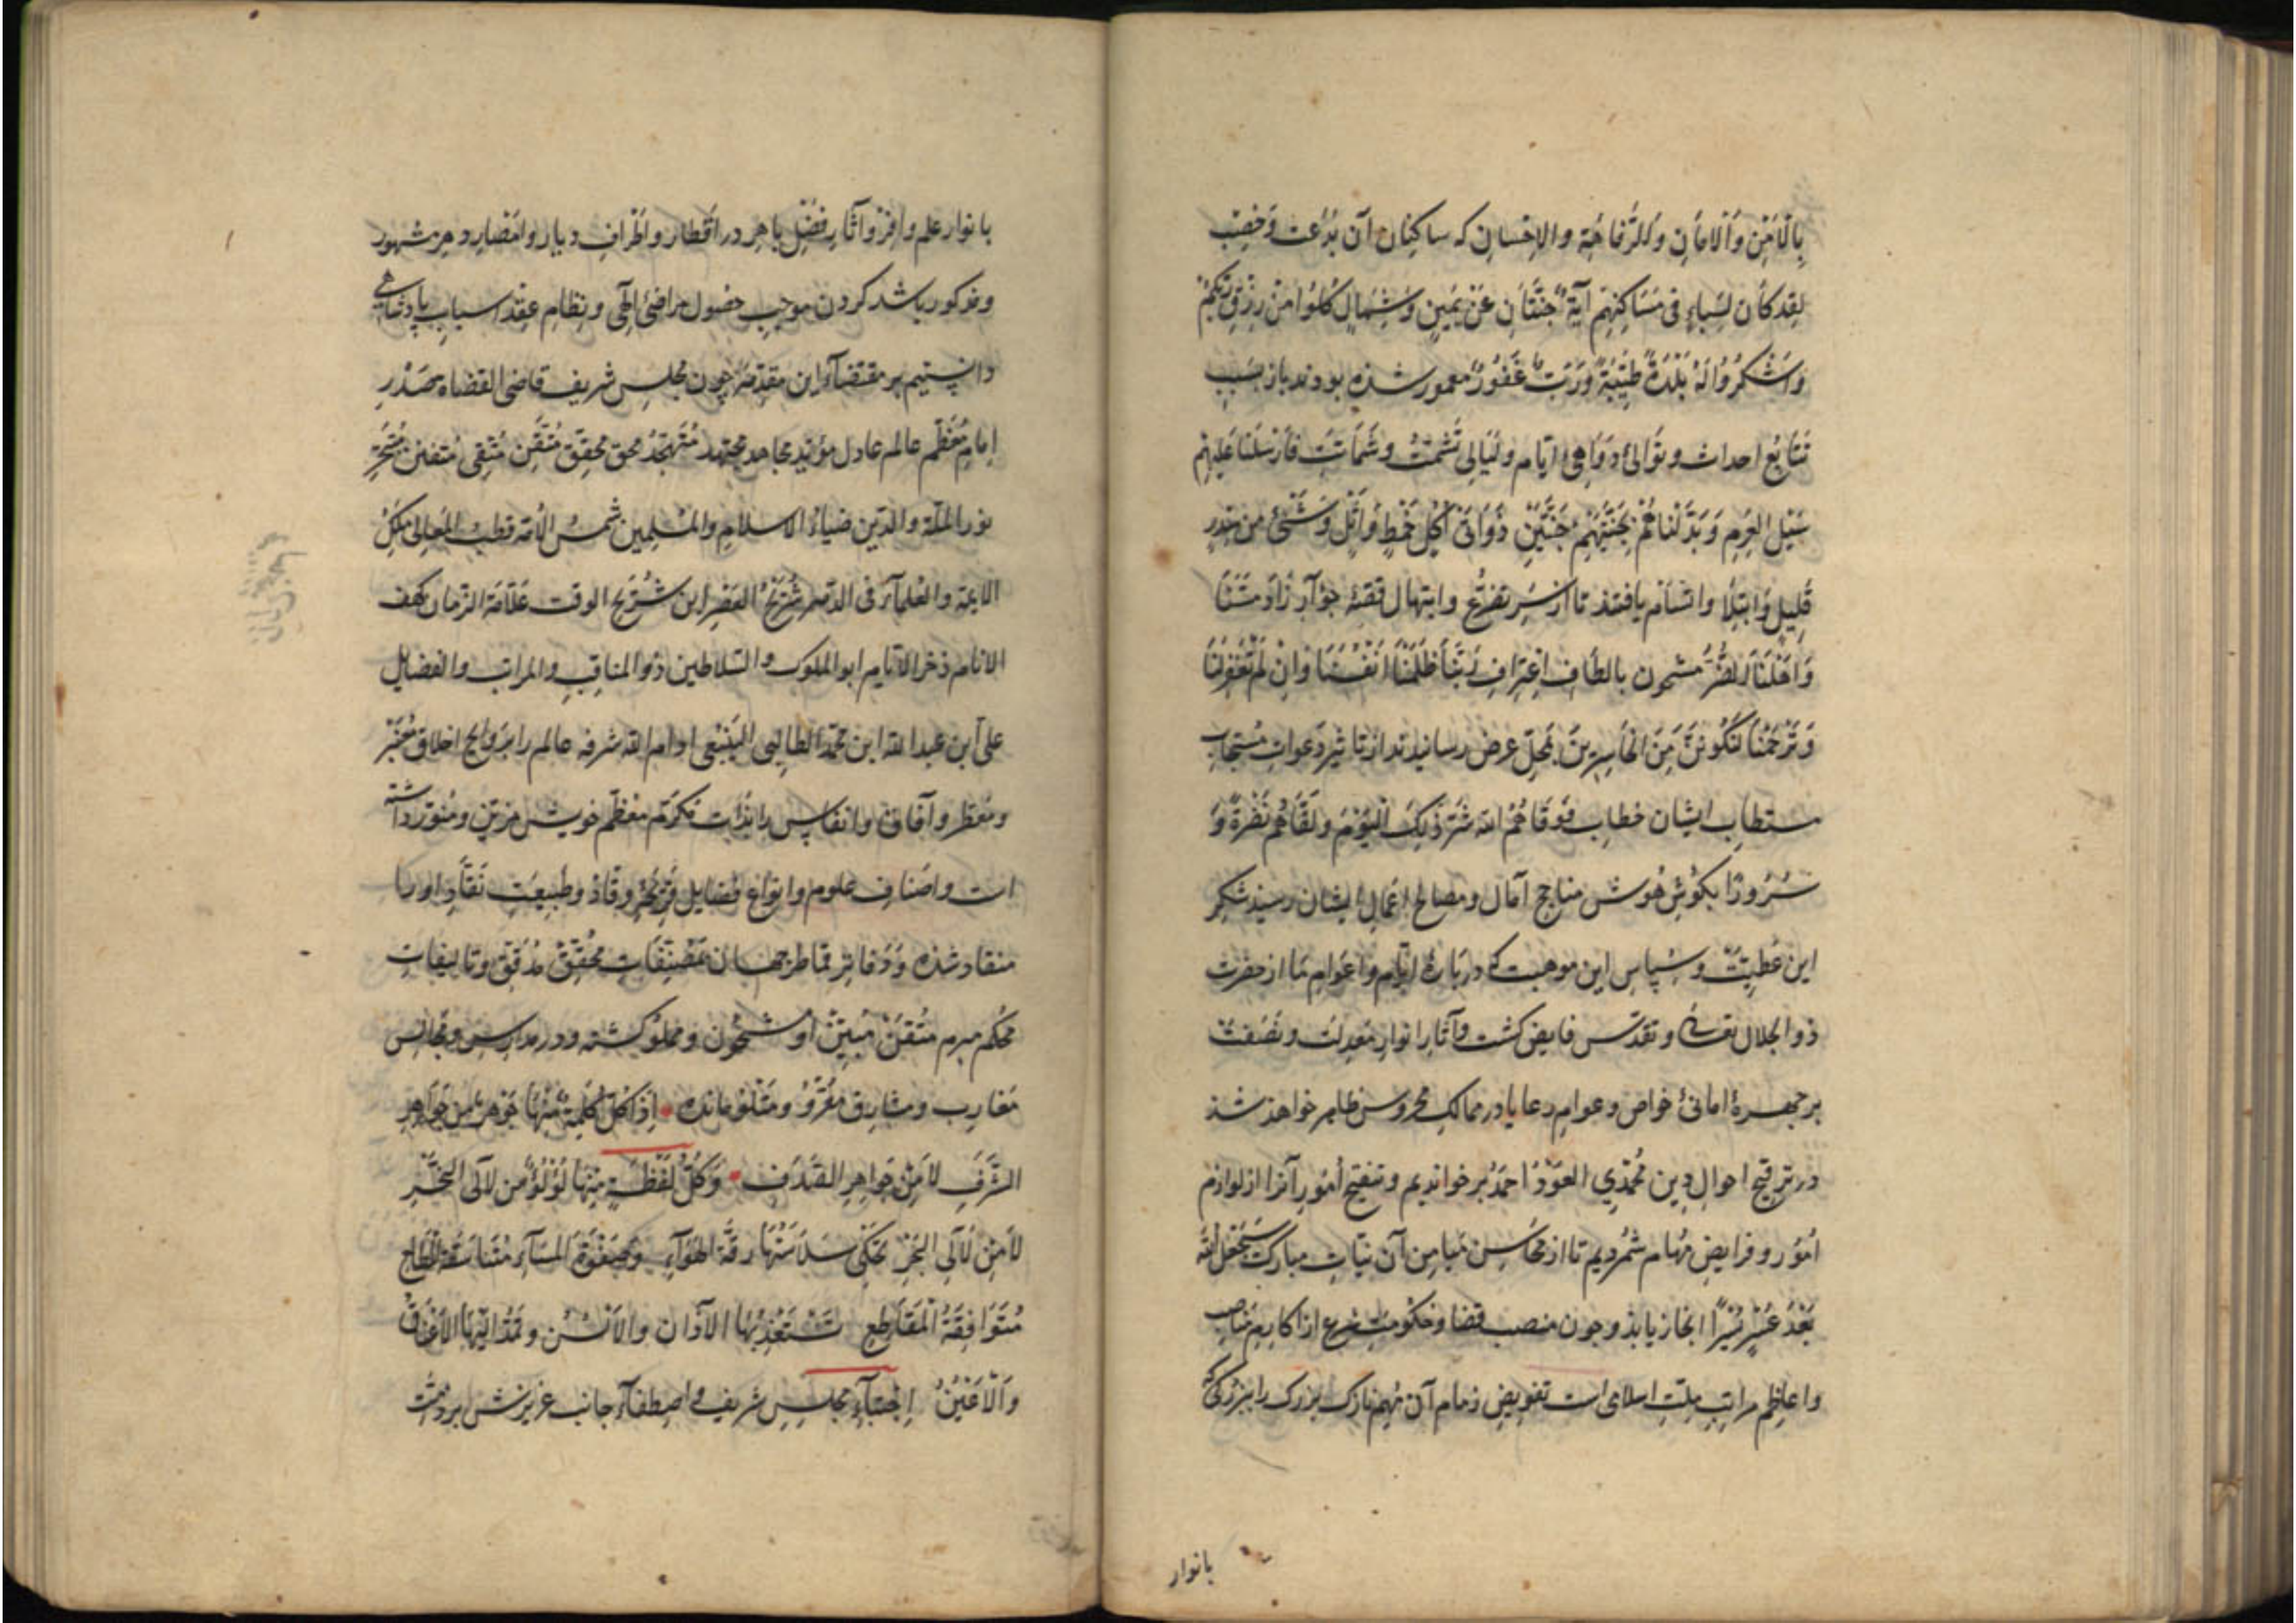 بِالْاَمْنِ وَالْاَمَانِ وَالرَّفَاهِیَةِ والاِحْسانِ که ساکِنان آن بدُعَت وَخِصْب
لقد کَانَ لِسَبَاءٍ فی مَسَاکِنِهِم آیَةٌ جَنَّتَانِ عَنْ یَمِینٍ وَشِمَالٍ کُلُوا مِنْ رِزْقِ رَبِّکُمْ
وَاشْکُرُوا لَهُ بَلْدَةٌ طَیِّبَةٌ وَرَبٌّ غَفُورٌ معمور شده بودند باز بسَبَب
تَتَابُعِ احداث و تَوالیْ دَوَاهِیْ ایّام و لَیَالی تَشَمُّت و شَمَاتت فَاَرْسَلْنَا عَلَیْهِم
سَیْلَ العَرِمِ وَبَدَّلْنَاهُمْ بِجَنَّتَیْهِمْ جَنَّتَیْنِ ذَوَاتَیْ اُکُلٍ خَمْطٍ وَاَثْلٍ وَشَیْئٍ مِن سِدرٍ
قَلِیلٍ وَابْتِلَا یافتند تا از سَرِ تضرُّع وابتهال قصّهٔ مَسَّنَا
وَاَهْلَنَا الضُّرُّ مشحون بالطافِ اعْتِرَافِ رَبَّنَا ظَلَمْنَا اَنْفُسَنَا وَاِنْ لَمْ تَغْفِرْلَنَا
وَتَرْحَمْنَا لَنَکُونَنَّ مِنَ الخَاسِرِینَ بمحلّ عرض رسانیدند از تاثیر دعوات مستجاب
مستطاب ایشان خطاب فَوَقَاهُمُ الله شَرَّ ذٰلِکَ الْیَوْمِ وَلَقَّاهُمْ نَضْرَةً وَ
سُرُورًا بکوشِ هُوش مناجح آمال و مصالح اعمال ایشان رسید شکر
این عَطِیّت و سپاس این موهبت که در باره ایّام واعوام ما از حضرت
ذوالجلال تعالی و تقدّس فایض کشت و آثار انوار معدلت و نَصَفت
بر چهره امانیْ خواص و عوام رعایا در ممالک محروس ظاهر خواهد شد
در ترقیح احوال دین مُحمّدی العَوْدُ اَحْمَدُ برخواندیم و تنقیح اُمُورِ آنرا از لوازم
اُمُور و فرایض مهام شمردیم تا از محاسن میامن آن نیّات مبارک سَیَجْعَلُ اللّٰه
بَعْدَ عُسْرٍ یُسْرًا انجاز یابد و چون منصب قضا وحکومت شرع از اکارم مناصب
واعاظِم مراتب ملّت اسلامی است تفویض زمام آن مُهِم نازک بزرک را ببزرکی که
بانوار
بانوار علم وافر و آثارِ فضلِ باهِر در اقطار واطراف دیار وامصارِ دهر مشهور
ومذکور باشد کردن موجب حصول مراضی الهی و نظام عقد اسباب پادشاهی
دانستیم بر مقتضاء این مقدّمه چون مجلس شریف قاضی القضاه صَدْر
امامِ مُعَظّم عالم عادل مؤید مجاهد مجتهد مُتهجّد محق محقّق مُتقن مُتّقی متفنن مُتبحّر
نور الملّة والدّین ضیاءُ الاسلام والمسلمین شمسُ الأمّة قطب المعالی ملک
الایمّة والعلمآء فی الدّهر شُرَیْحُ العَصْر ابن شُرَیْح الوقت عَلّامَة الزمان کهف
الانام ذخر الایّام ابو الملوک والسّلاطین ذو المناقب والمراتب والفضایل
علی ابن عبد الله ابن محمّد الطالبی الیَنْبُعی ادام الله شرفه عالم را بروایح اخلاق معنبر
ومُعَطّر و آفاق وانفاس را بذات مکرّم معظّم خویش مزیّن ومُنوّر داشته
است واصناف علوم وانواع فضایل قَرِیْحهٔ وقّاد وطبیعَت نَقّاد او را
منقاد شده و دَفاتر قماطر جهان بمُصَنّفَاتِ محقّق مُدَقّق وتالیفات
محکم مبرم مُتْقَن مُبیّن او مشحون ومملوّ کشته ودر مدارس ومجالس
مَغارب ومشارق مقرُوّ ومَتْلُوّ مانده اِذَا کُلُّ کَلِمَةٍ مِنْهَا جَوْهَرٌ مِن جَوَاهِرِ
الشَّرَفِ لا مِنْ جَوَاهِرِ الصَّدَف وَکُلُّ لَفْظَةٍ مِنْهَا لُؤْلُؤٌ مِن لآلی
لَا مِنْ لَآلی البَحْرِ تحکی سَلَاسَتُهَا رقّة الهَوَآءِ وصَفْوَة المَآءِ مُتَنَاسَقَة
مُتَوَافِقَةُ الْمَقَاطِعِ تَسْتَعْذِبُهَا الآذَان والاَلْسُن وتَمُدُّ اِلَیْهَا الاَعْنَاقُ
وَالْاَعْیُنُ اِجْتِبَآءِ مجلس شریف و اصطفآء جانب عزیزش بر ذمّت